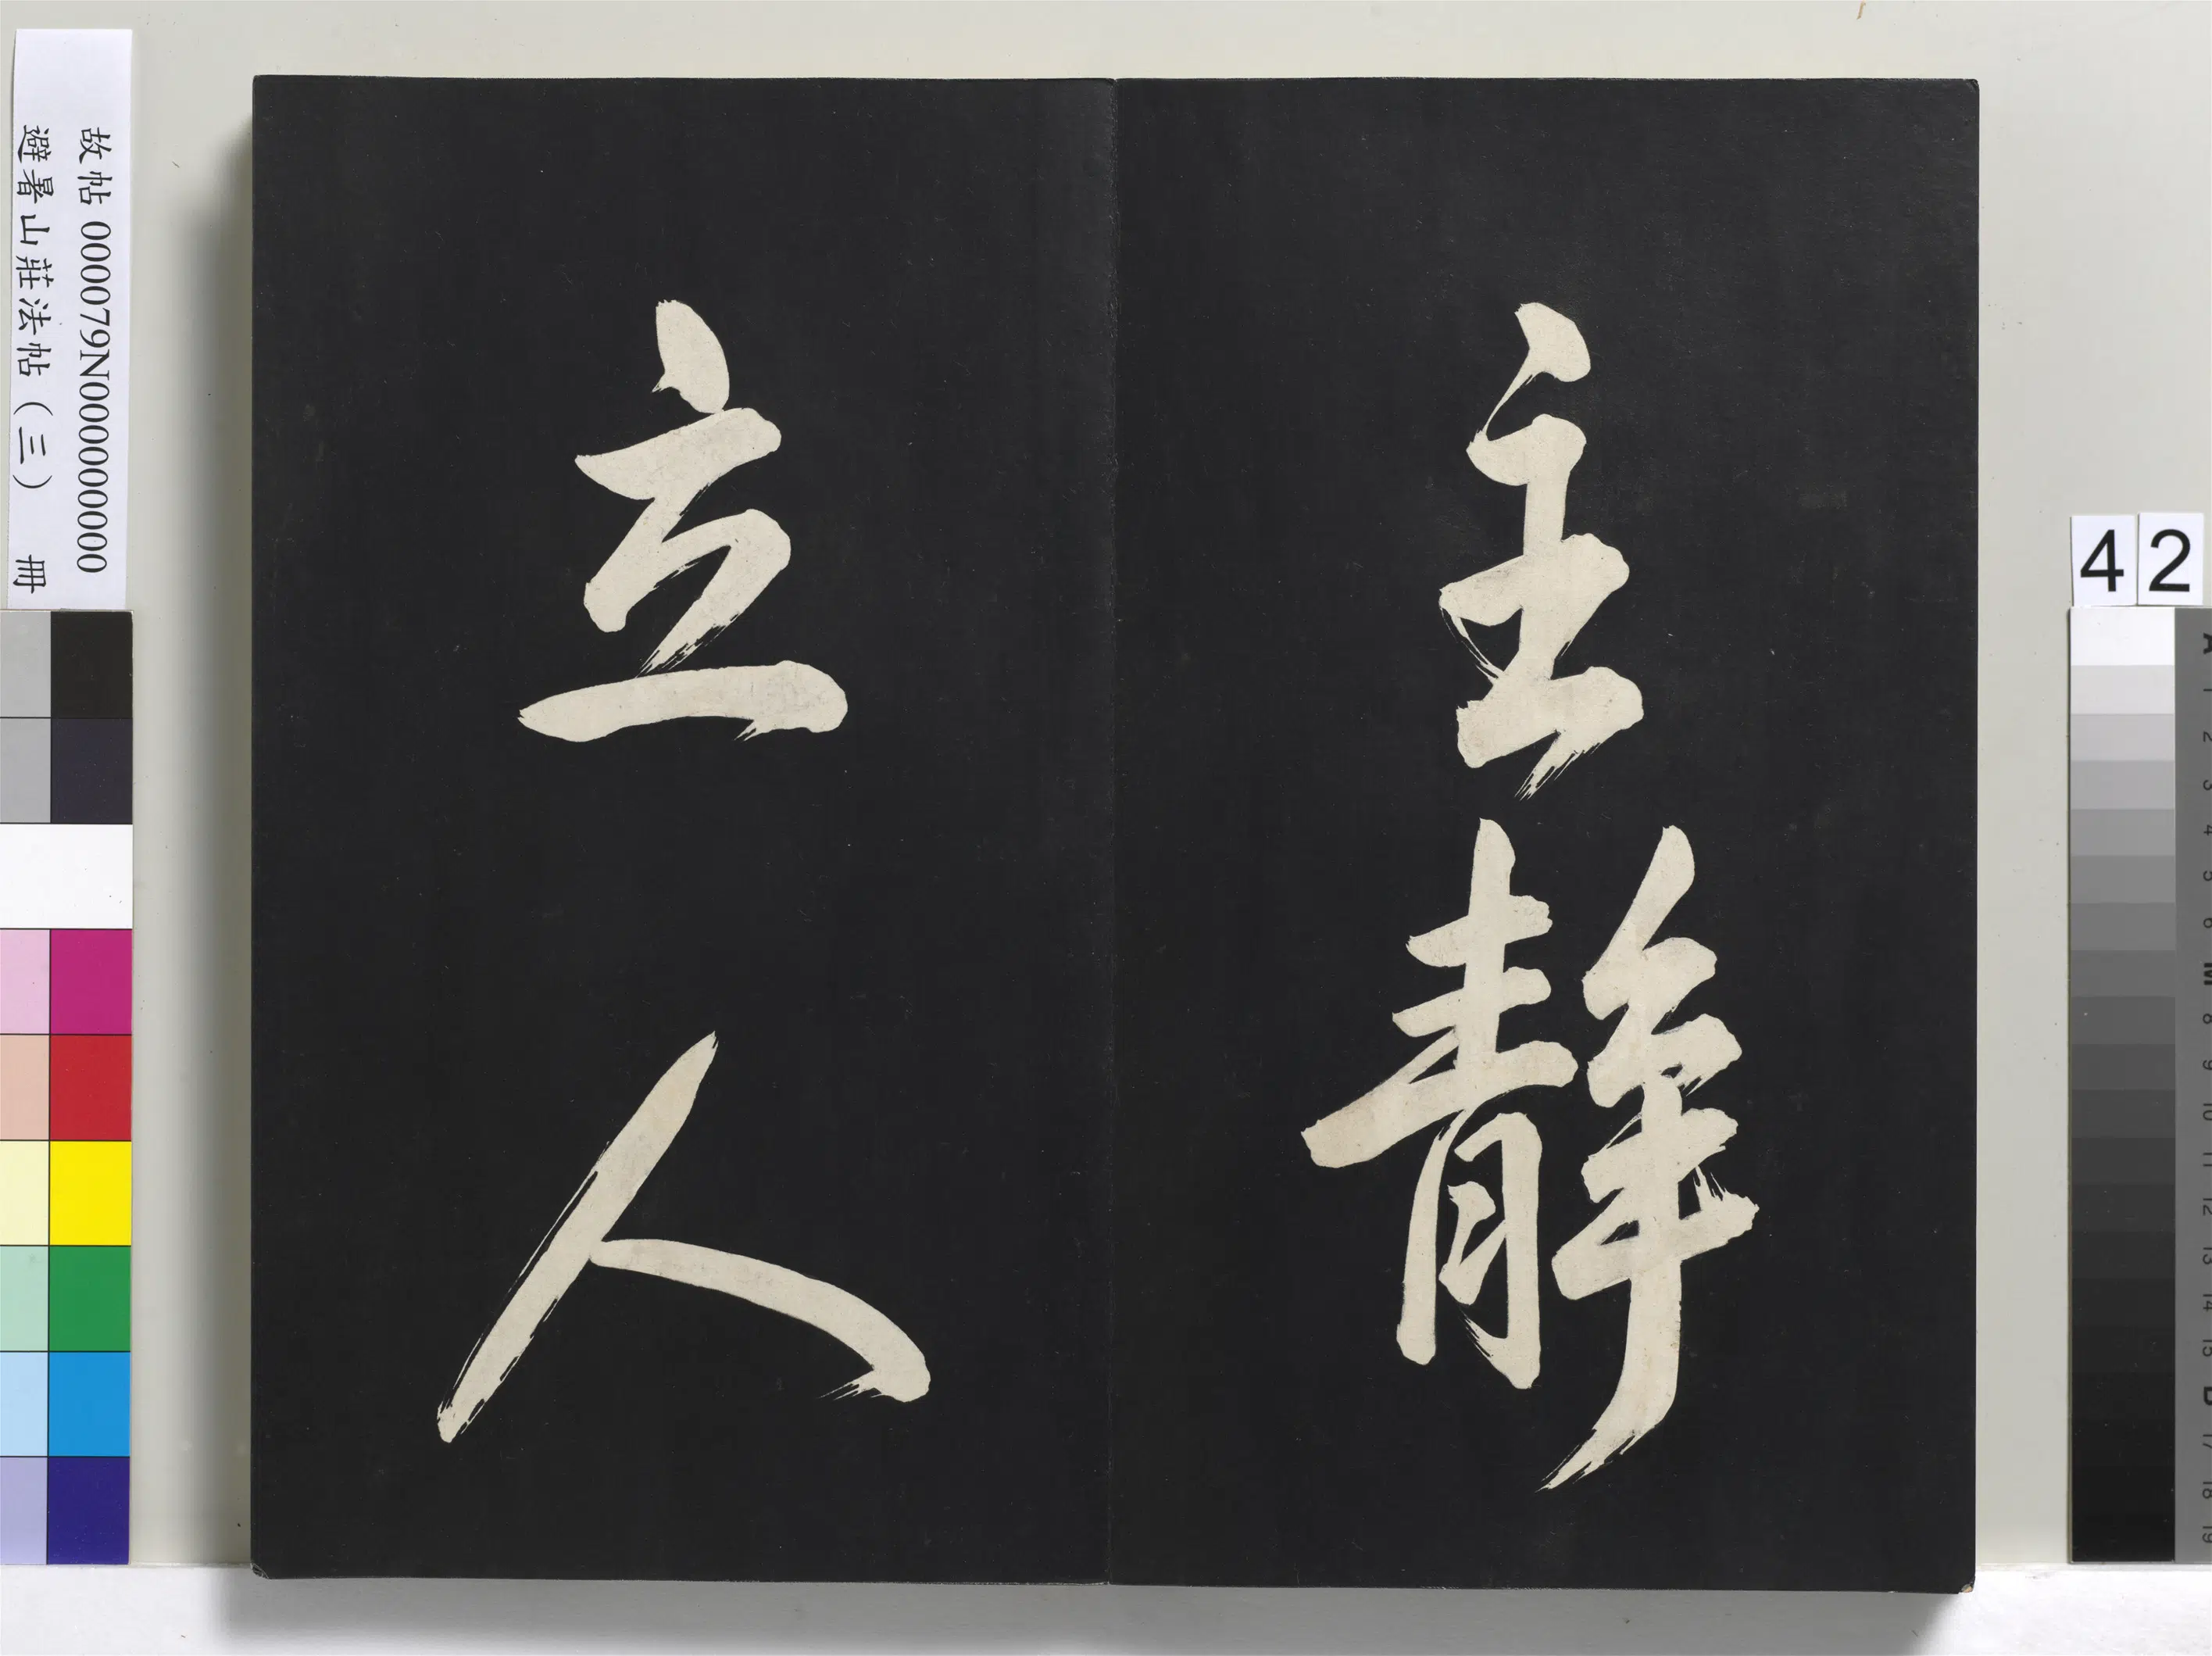 主靜
立人
故帖 000079N000000000
避暑山莊法帖（三） 冊
42
A 1 2 3 4 5 6 M 8 9 10 11 12 13 14 15 B 17 18 19